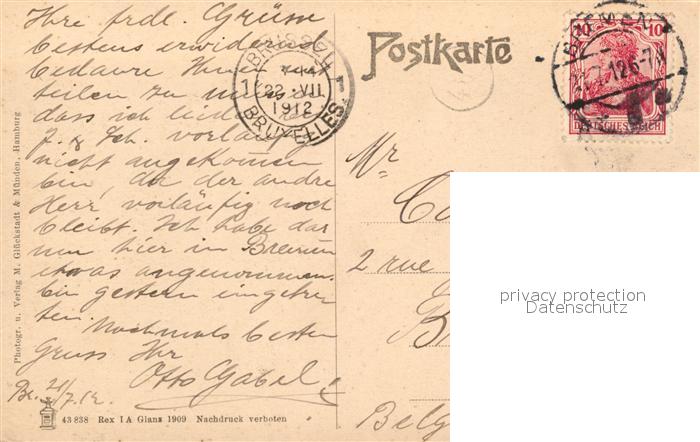 Ihre frdl. Grüsse
bestens erwidernd
bedaure Ihnen mit
teilen zu müssen
dass ich leider
J. & Sch. vorläufig
nicht angekommen
bin, da der andre
Herr vorläufig noch
bleibt. Ich habe da
nun hier in Bremen
etwas angenommen.
bin gestern eingetre
ten.
Nochmals besten
Gruss Ihr
Otto Gabel
Br. 21/7.12.
Photogr. u. Verlag M. Glückstadt & Münden, Hamburg
43838 Rex I A Glanz 1909 Nachdruck verboten
Postkarte
BRUSSEL
1
22 VII
1912
BRUXELLES
BREMEN
12 6-7
10 10
DEUTSCHES REICH
Mr
2 rue
Belg
privacy protection
Datenschutz